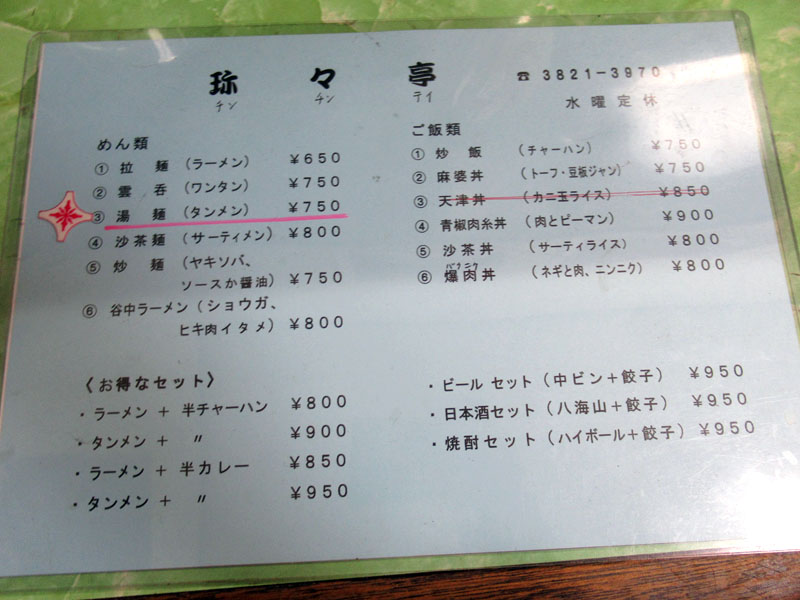 珎々亭
チン チン テイ
☎ 3821-3970
水曜定休
めん類
① 拉麺 (ラーメン) ¥650
② 雲呑 (ワンタン) ¥750
③ 湯麺 (タンメン) ¥750
④ 沙茶麺 (サーティメン) ¥800
⑤ 炒麺 (ヤキソバ、
ソースか醤油) ¥750
⑥ 谷中ラーメン (ショウガ、
ヒキ肉イタメ) ¥800
ご飯類
① 炒飯 (チャーハン) ¥750
② 麻婆丼 (トーフ・豆板ジャン) ¥750
③ 天津丼 (カニ玉ライス) ¥850
④ 青椒肉糸丼 (肉とピーマン) ¥900
⑤ 沙茶丼 (サーティライス) ¥800
バクニク
⑥ 爆肉丼 (ネギと肉、ニンニク) ¥800
〈お得なセット〉
・ラーメン + 半チャーハン ¥800
・タンメン + 〃 ¥900
・ラーメン + 半カレー ¥850
・タンメン + 〃 ¥950
・ビール セット (中ビン+餃子) ¥950
・日本酒セット (八海山+餃子) ¥950
・焼酎セット (ハイボール+餃子) ¥950